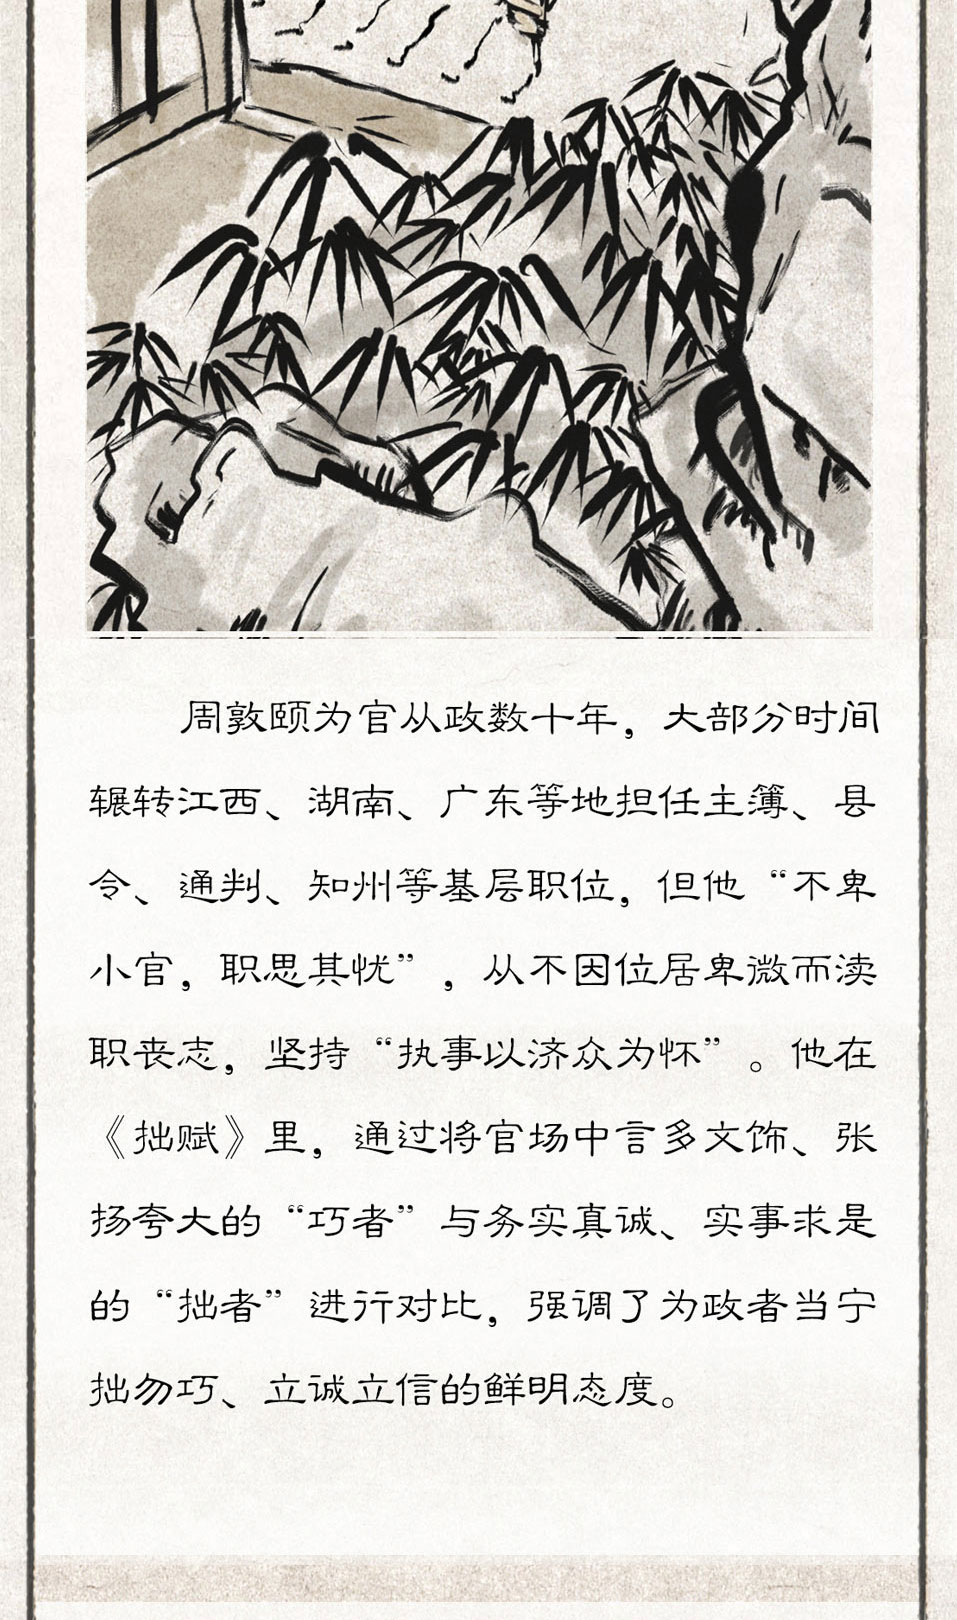 周敦颐为官从政数十年，大部分时间
辗转江西、湖南、广东等地担任主簿、县
令、通判、知州等基层职位，但他“不卑
小官，职思其忧”，从不因位居卑微而渎
职丧志，坚持“执事以济众为怀”。他在
《拙赋》里，通过将官场中言多文饰、张
扬夸大的“巧者”与务实真诚、实事求是
的“拙者”进行对比，强调了为政者当宁
拙勿巧、立诚立信的鲜明态度。